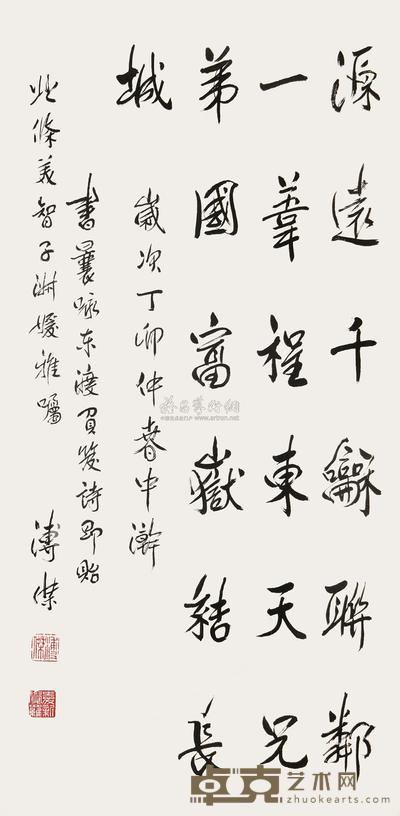 源遠千龢聯鄰
一葦程東天兄
弟國富嶽結長
城
歲次丁卯仲春中澣
書曩咏东渡負笈詩即貽
北條美智子淑媛雅囑
溥傑
卓克艺术网
www.zhuokearts.com